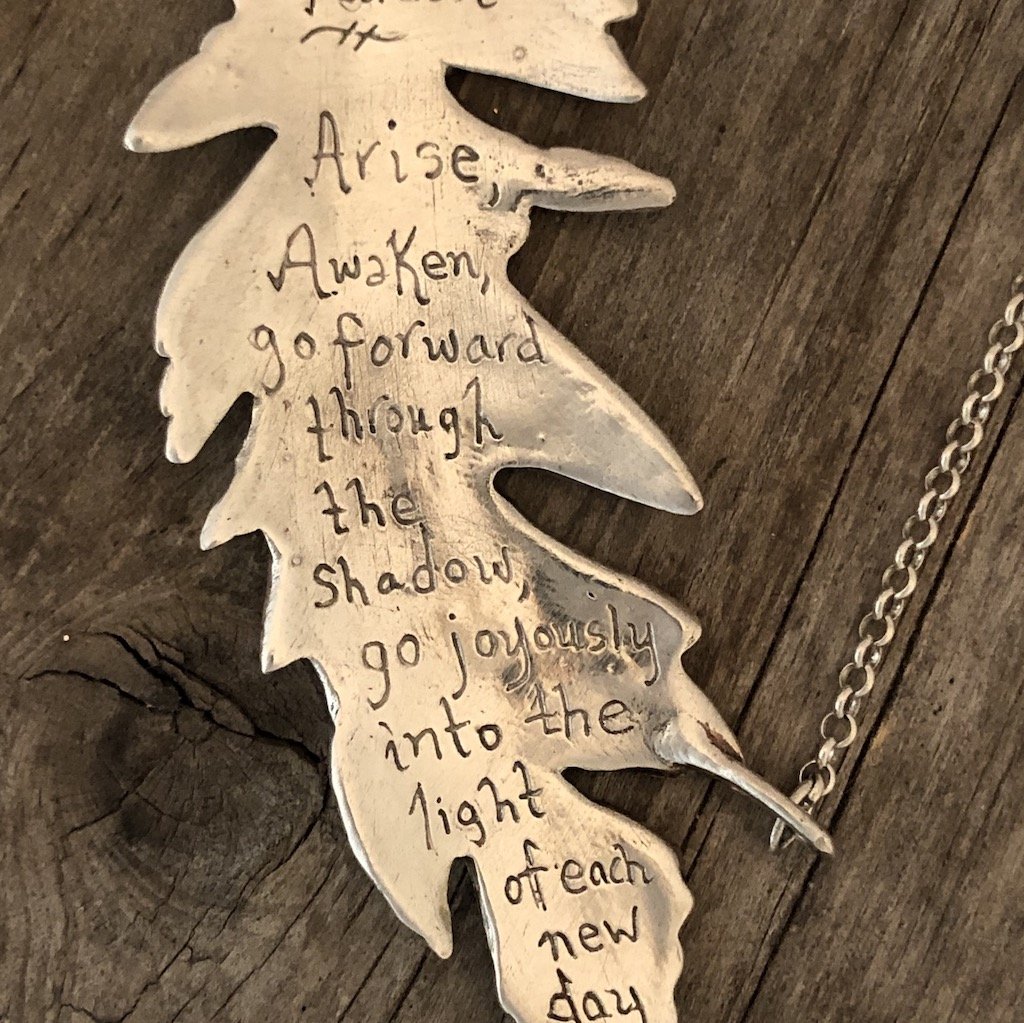 Arise,
Awaken,
go forward
through
the
shadow,
go joyously
into the
light
of each
new
day